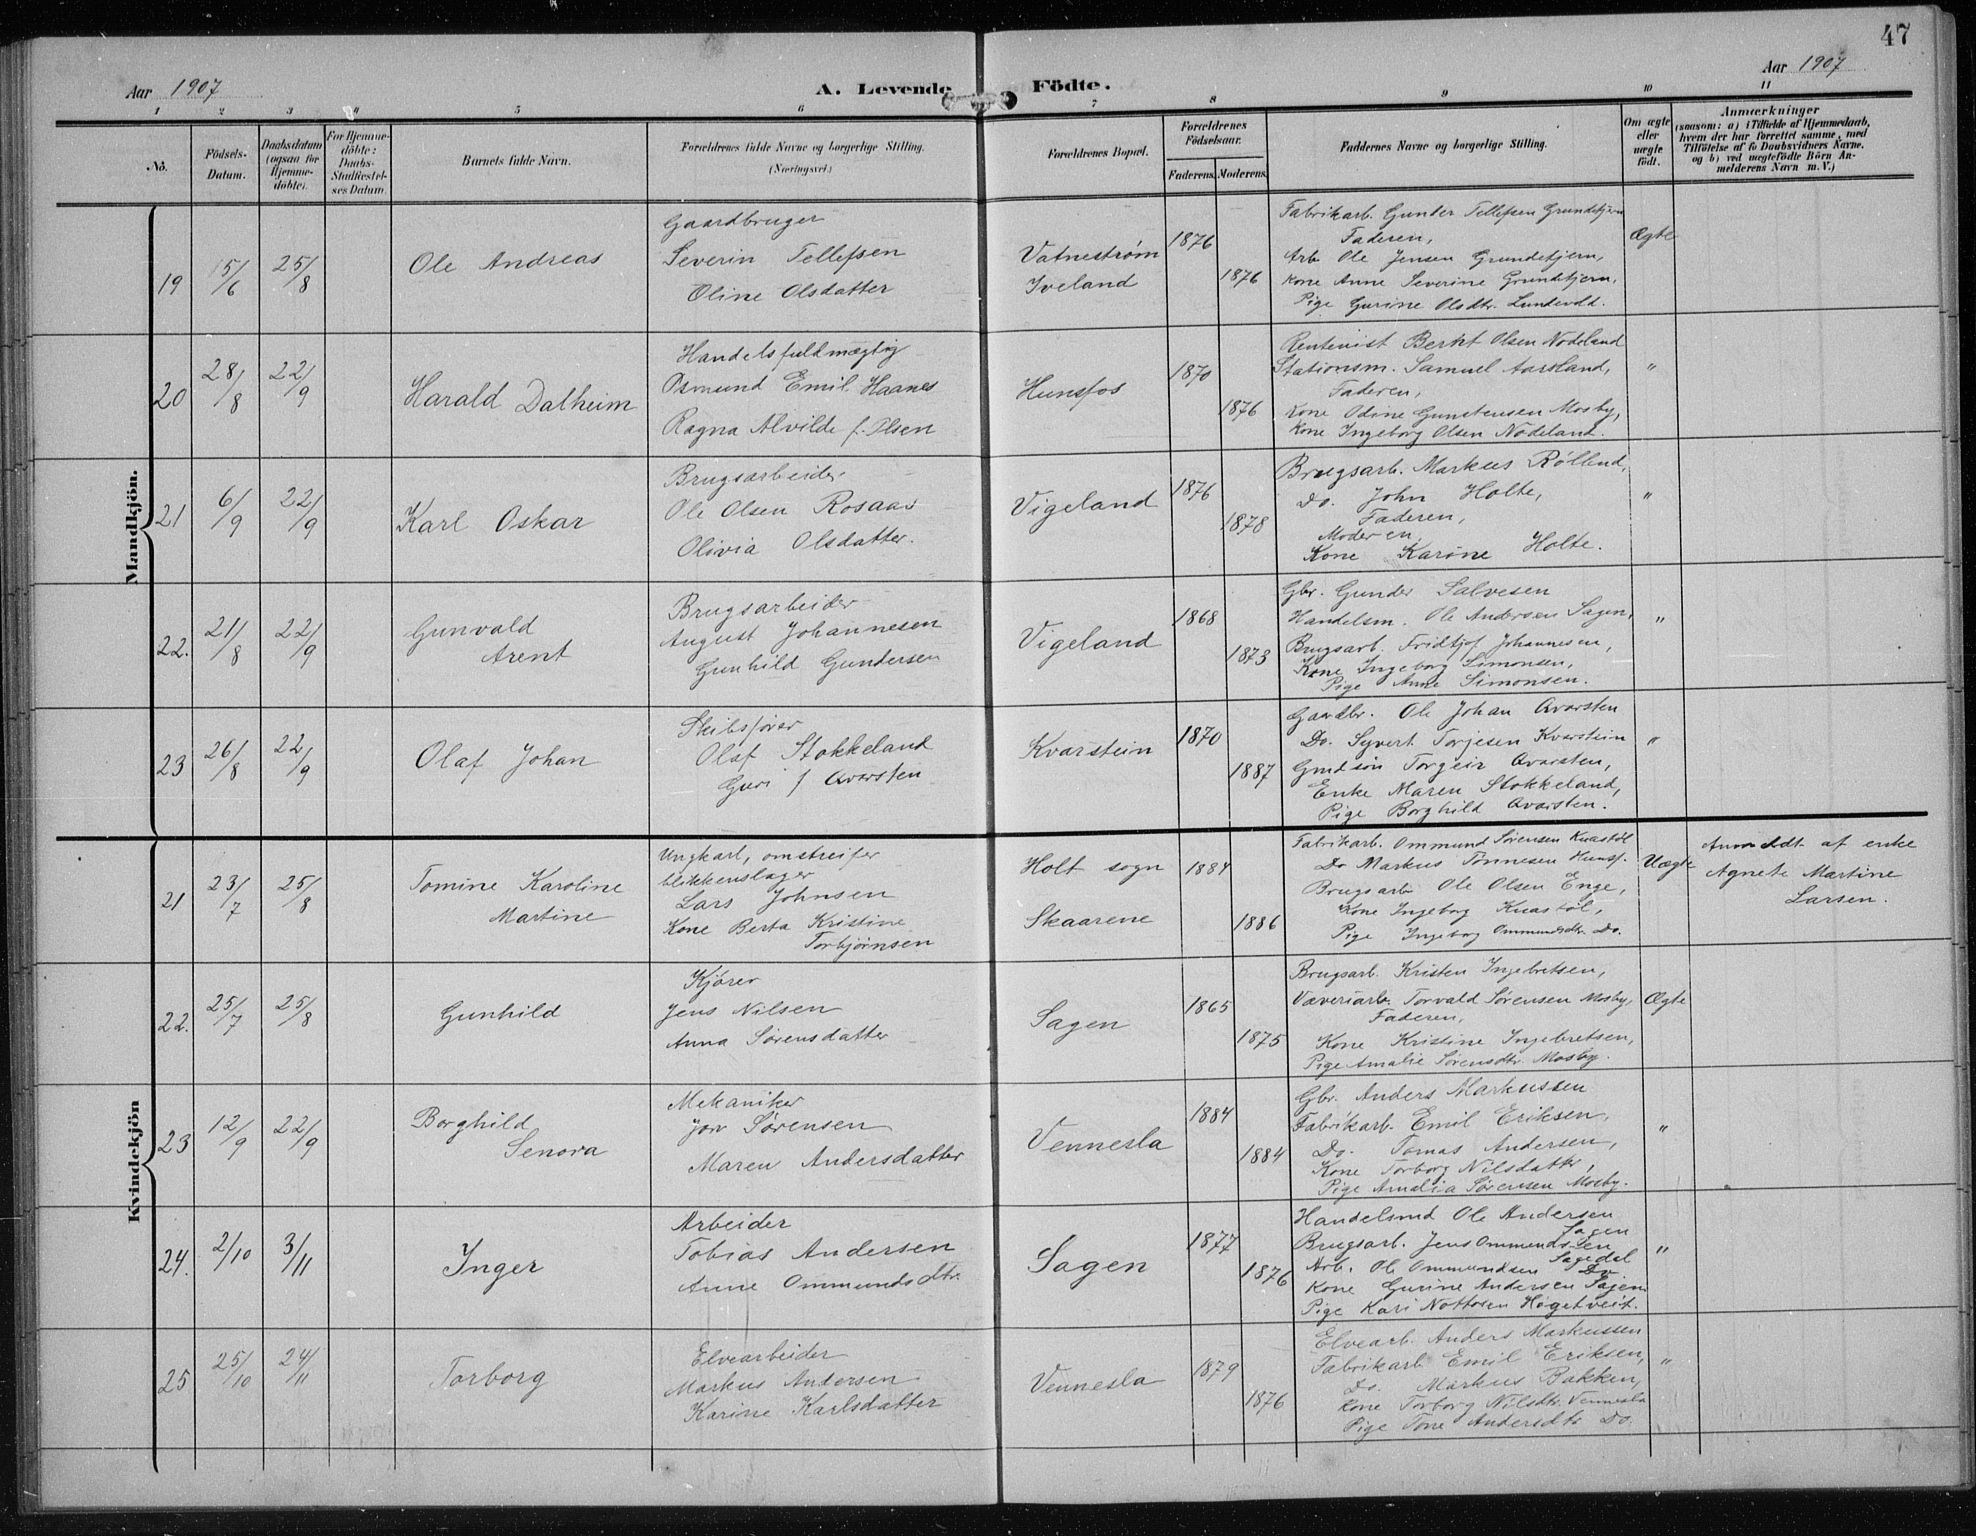 47
Aar 1907
A. Levende Födte.
Aar 1907
1 2 3 4 5 6 7 8 9 10 11
No.
Födsels-
Datum.
Daabsdatum
(ogsaa for
Hjemme-
döbte).
For Hjemme-
döbte:
Daabs-
Stadfæstel-
ses Datum.
Barnets fulde Navn.
Forældrenes fulde Navne og borgerlige Stilling.
(Næringsvei.)
Forældrenes Bopæl.
Forældrenes
Födselsaar.
Faderens. Moderens.
Faddernes Navne og borgerlige Stilling.
Om ægte
eller
uægte
födt.
Anmærkninger
(saasom: a) i Tilfælde af Hjemmedaab,
hvem der har forrettet samme, med
Tilföielse af to Daabsvidners Navne.
og b) ved uægtefödte Börn An-
melderens Navn m. V.)
Mandkjön.
19
15/6
25/8
Ole Andreas
Gaardbruger
Severin Tellefsen
Oline Olsdatter
Vatnestrøm
Iveland
1876
1876
Fabrikarb. Gunder Tellefsen Grundetjern
Faderen,
Arb. Ole Jensen Grundetjern,
Kone Anne Severine Grundetjern,
Pige Gurine Olsdtr. Lundevold.
Ægte
20
28/8
22/9
Harald Dalheim
Handelsfuldmægtig
Osmund Emil Haanes
Ragna Alvilde f. Olsen
Hunsfos
1870
1876
Rentenist Berht Olsen Nodeland
Stationsm. Samuel Aarsland,
Faderen,
Kone Odine Gunstensen Mosby,
Kone Ingeborg Olsen Nodeland.
"
21
6/9
22/9
Karl Oskar
Brugsarbeider
Ole Olsen Rosaas
Olivia Olsdatter.
Vigeland
1876
1878
Brugsarb. Markus Røllend,
Do. John Holte,
Faderen,
Moderen,
Kone Karine Holte.
"
22.
21/8
22/9
Gunvald
Arent
Brugsarbeider
August Johannesen
Gunhild Gundersen
Vigeland
1868
1873
Gbr. Gunder Salvesen
Handelsm. Ole Andersen Sagen,
Brugsarb. Fridtjof Johannesen,
Kone Ingeborg Simonsen,
Pige Anne Simonsen.
"
23
26/8
22/9
Olaf Johan
Skibsfører
Olaf Stokkeland
Guri f Qvarsten
Kvarstein
1870
1887
Gaardbr. Ole Johan Qvarsten
Do. Syvert Torjesen Kvarstein
Grndsøn Torgeir Qvarsten,
Enke Maren Stokkeland,
Pige Borghild Qvarsten.
"
Kvindekjön
21
23/7
25/8
Tomine Karoline
Martine
Ungkarl, omstreifer
blikkenslager
Lars Johnsen
Kone Berta Kristine
Torbjørnsen
Holt sogn
Skaarene
1884
1886
Fabrikarb. Ommund Sørensen Knastøl
Do Markus Tønnesen Hunsf.
Brugsarb Ole Olsen Enge,
Kone Ingeborg Knastøl,
Pige Ingeborg Ommundsdtr. Do.
Uægte
Anmeldt af enke
Agnete Martine
Larsen.
22.
25/7
25/8
Gunhild
Kjører
Jens Nilsen
Anna Sørensdatter
Sagen
1865
1875
Brugsarb. Kristen Ingebretsen,
Væveriarb. Torvald Sørensen Mosby,
Faderen,
Kone Kristine Ingebretsen,
Pige Amalie Sørensdtr. Mosby.
Ægte
23
12/9
22/9
Borghild
Senora
Mekaniker
Jon Sørensen
Maren Andersdatter
Vennesla
1884
1884
Gbr. Anders Markussen
Fabrikarb. Emil Eriksen,
Do. Tomas Andersen,
Kone Torborg Nilsdatter,
Pige Amalia Sørensen Mosby.
"
24.
2/10
3/11
Inger
Arbeider
Tobias Andersen
Anne Ommundsdtr.
Sagen
1877
1876
Handelsmd Ole Andersen
Sagen
Brugsarb. Jens Ommundsen
Sagedal
Arb. Ole Ommundsen Do
Kone Gurine Andersen Sagen
Pige Kari Nottosen Høgetveit.
"
25
25/10
24/11
Torborg
Elvearbeider
Markus Andersen
Karine Karlsdatter
Vennesla
1879
1876
Elvearb. Anders Markussen
Fabrikarb Emil Eriksen,
Do. Markus Bakken,
Kone Torborg Nilsdtr. Vennesla
Pige Tone Andersdtr Do.
"